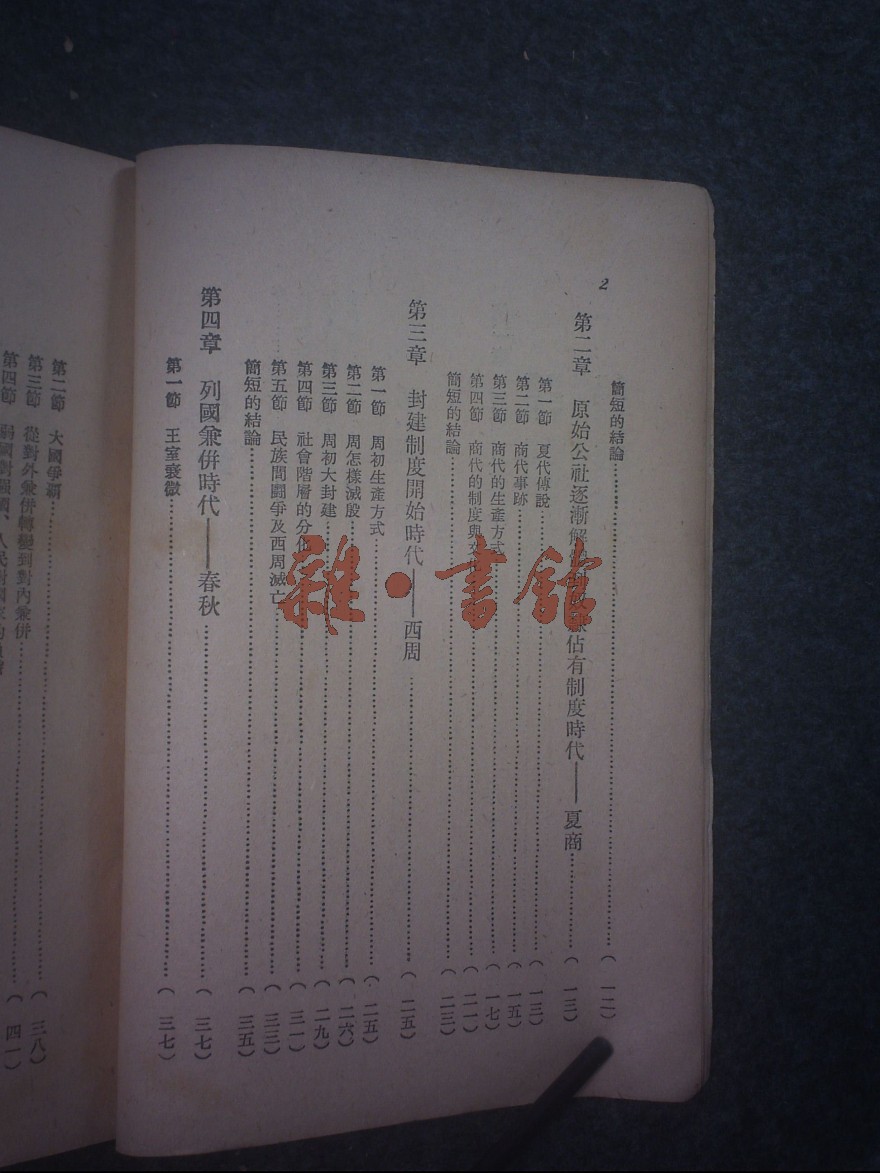 2
簡短的結論……(一二)
第二章 原始公社逐漸解 佔有制度時代——夏商……(一三)
第一節 夏代傳說……(一三)
第二節 商代事跡……(一五)
第三節 商代的生產方式……(一七)
第四節 商代的制度與文……(二一)
簡短的結論……(二三)
第三章 封建制度開始時代——西周……(二五)
第一節 周初生產方式……(二五)
第二節 周怎樣滅殷……(二六)
第三節 周初大封建……(二九)
第四節 社會階層的分化……(三一)
第五節 民族間鬪爭及西周滅亡……(三三)
簡短的結論……(三五)
第四章 列國兼併時代——春秋……(三七)
第一節 王室衰微……(三七)
第二節 大國爭霸……(三八)
第三節 從對外兼併轉變到對內兼併……(四一)
第四節 弱國對強國、人民對國家的
雜·書館